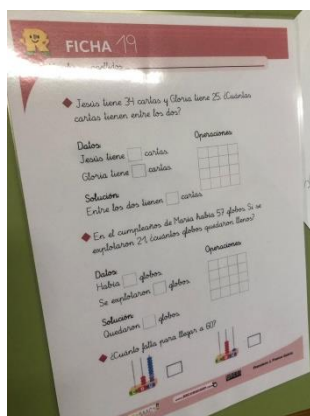 FICHA 19
Jesús tiene 34 cartas y Gloria tiene 25. ¿Cuántas
cartas tienen entre los dos?
Datos:
Operaciones:
Jesús tiene cartas
Gloria tiene cartas
Solución:
Entre los dos tienen cartas
En el cumpleaños de María había 57 globos. Si se
explotaron 21, ¿cuántos globos quedaron llenos?
Datos:
Operaciones:
Había globos
Se explotaron globos
Solución:
Quedaron globos
¿Cuánto falta para llegar a 60?